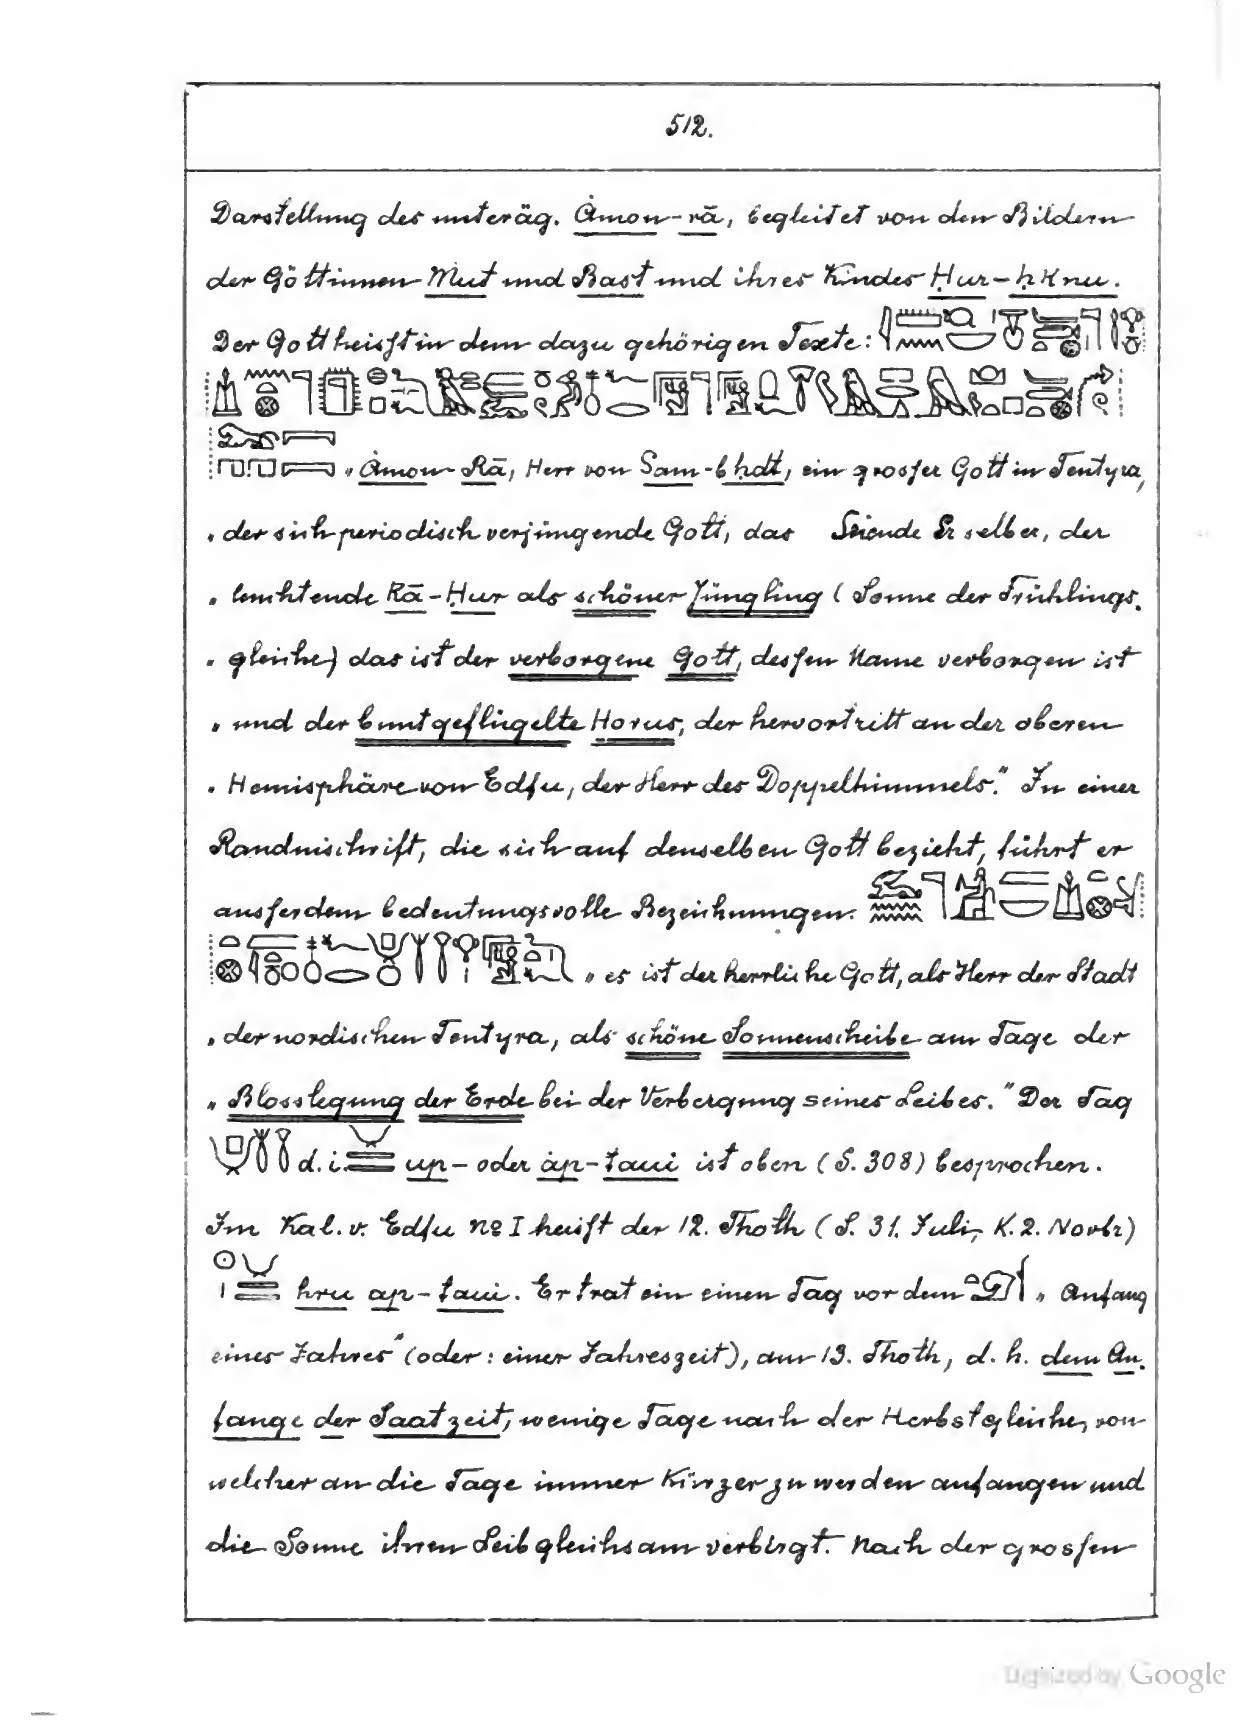 512.
Darstellung des unteräg. Ȧmon-rā, begleitet von den Bildern
der Göttinnen Mut und Bast und ihres Kindes Ḥur-ḥknu.
Der Gott heisst in dem dazu gehörigen Texte:
„Ȧmon-Rā, Herr von Sam-bḥdt, ein grosser Gott in Tentyra,
„der sich periodisch verjüngende Gott, das Seiende Er selber, der
„leuchtende Rā-Ḥur als schöner Jüngling (Sonne der Frühlings-
„gleiche) das ist der verborgene Gott, dessen Name verborgen ist
„und der buntgeflügelte Horus, der hervortritt an der oberen
„Hemisphäre von Edfu, der Herr des Doppelhimmels." In einer
Randinschrift, die sich auf denselben Gott bezieht, führt er
ausserdem bedeutungsvolle Bezeichnungen:
„es ist der herrliche Gott, als Herr der Stadt
„der nordischen Tentyra, als schöne Sonnenscheibe am Tage der
„Blosslegung der Erde bei der Verbergung seines Leibes." Der Tag
d. i. up- oder ȧp-taui ist oben (S. 308) besprochen.
Im Kal. v. Edfu No I heisst der 12. Thoth (S. 31. Juli, K. 2. Novbr)
hru ap-taui. Er trat ein einen Tag vor dem „Anfang
eines Jahres" (oder: einer Jahreszeit), am 13. Thoth, d. h. dem An-
fange der Saatzeit, wenige Tage nach der Herbstgleiche, von
welcher an die Tage immer kürzer zu werden anfangen und
die Sonne ihren Leib gleichsam verbirgt. Nach der grossen
Digitized by Google